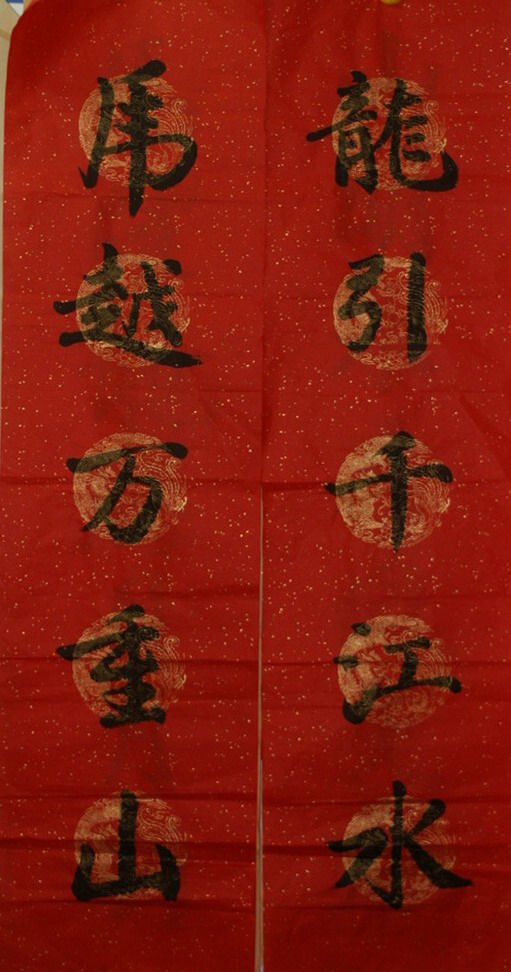 龍引千江水
虎越万重山